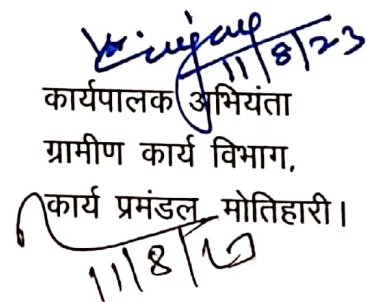 11/8/23
कार्यपालक अभियंता
ग्रामीण कार्य विभाग,
कार्य प्रमंडल, मोतिहारी।
11/8/